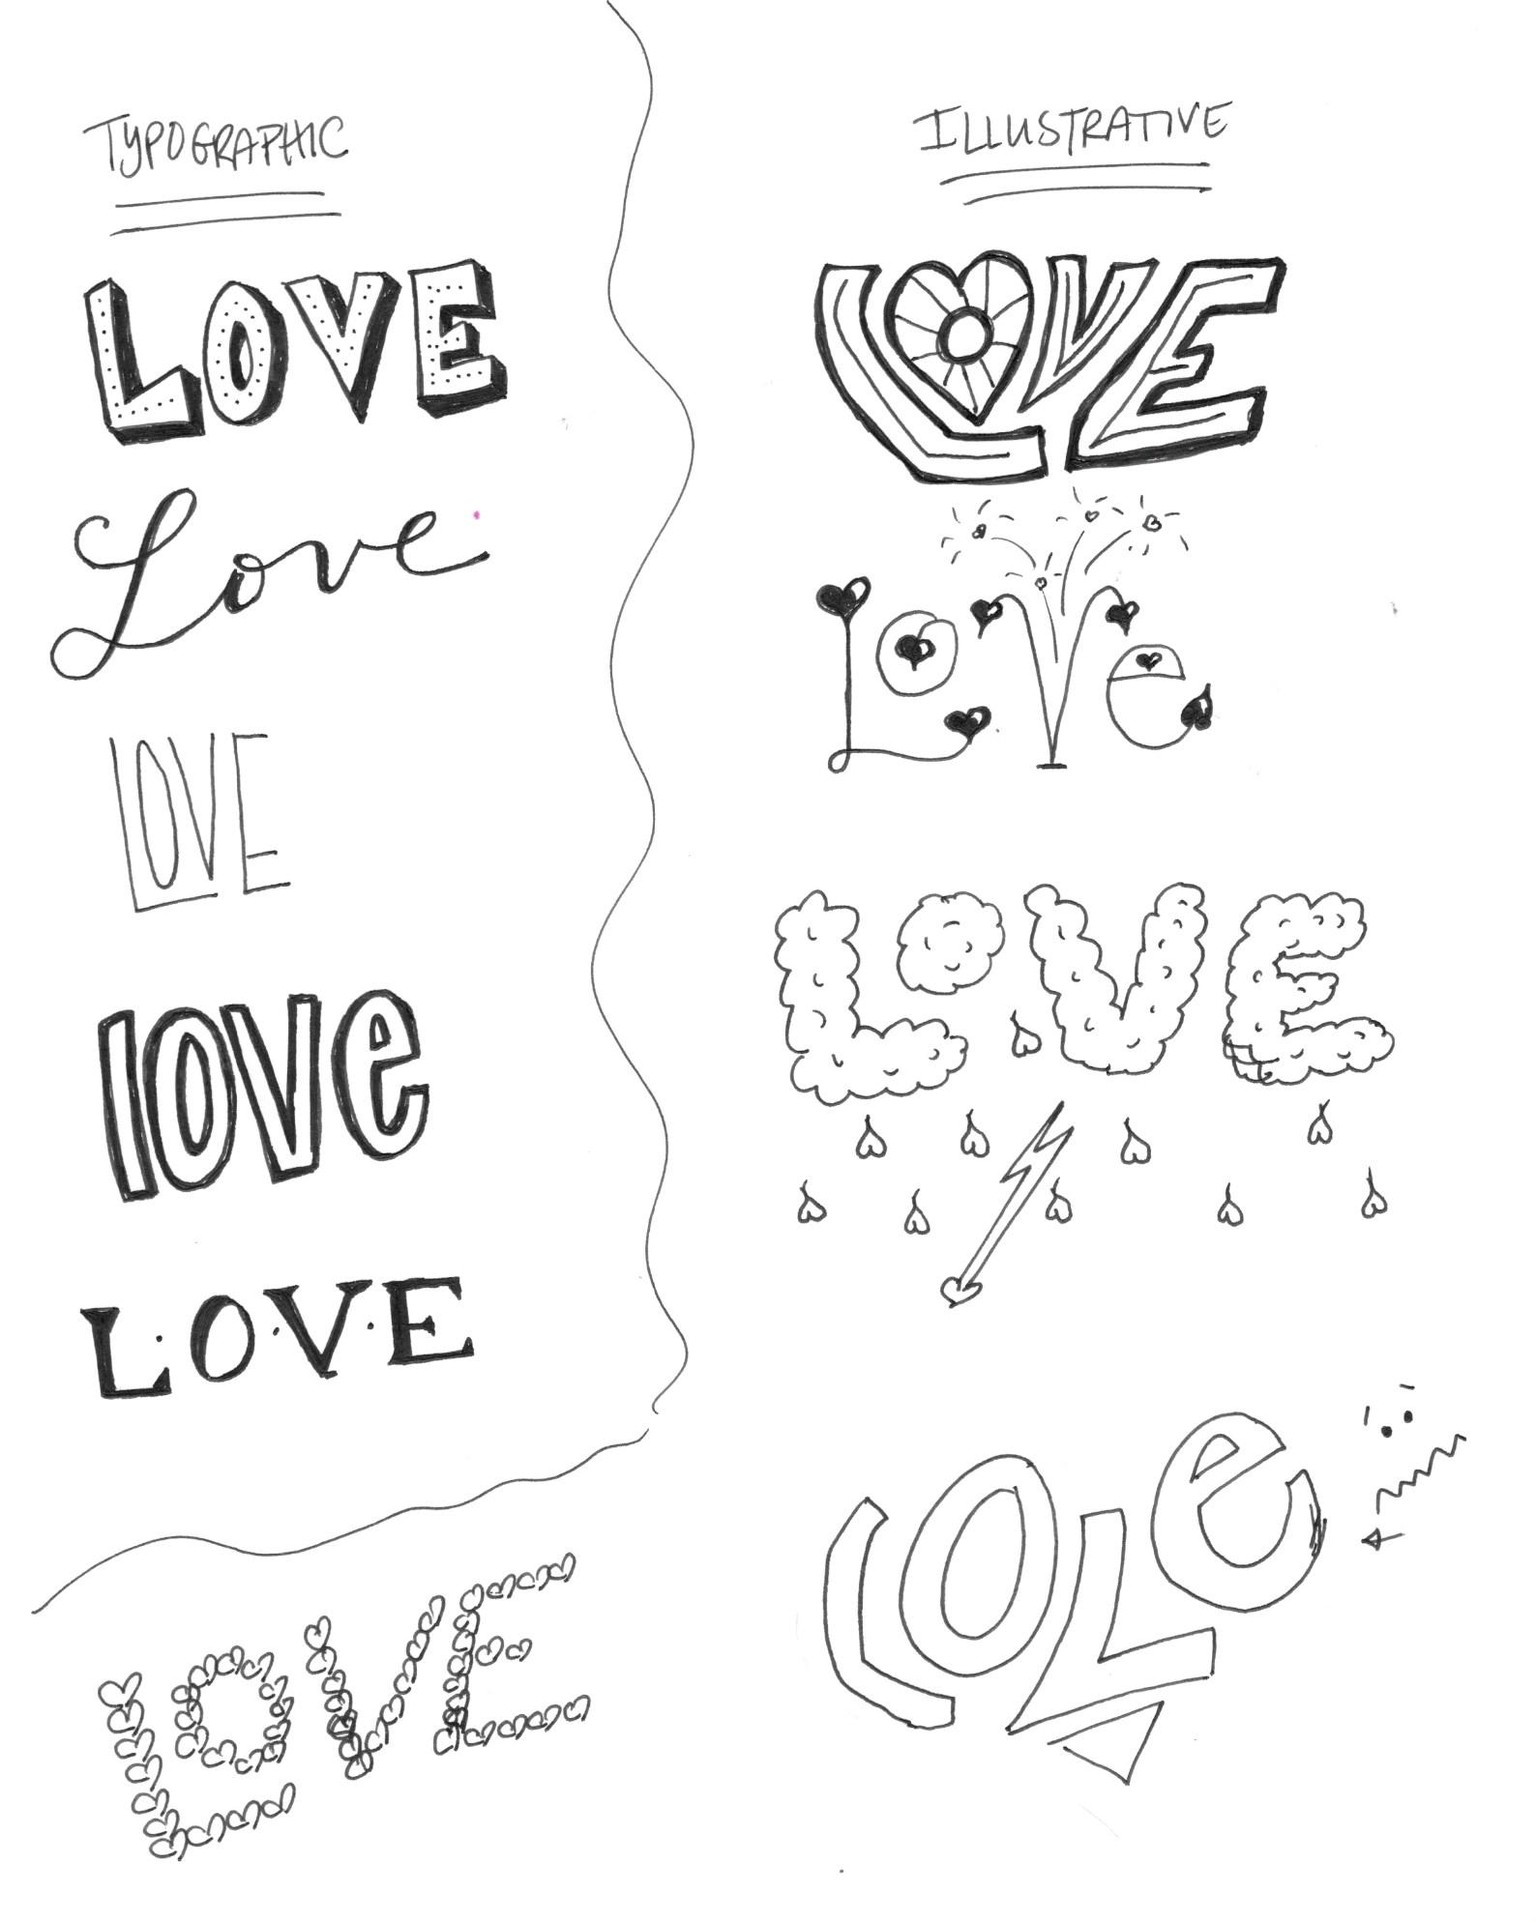 TYPOGRAPHIC
LOVE
Love
LOVE
love
L·O·V·E
ILLUSTRATIVE
LOVE
LoVe
LOVE
LOLe
LOVE